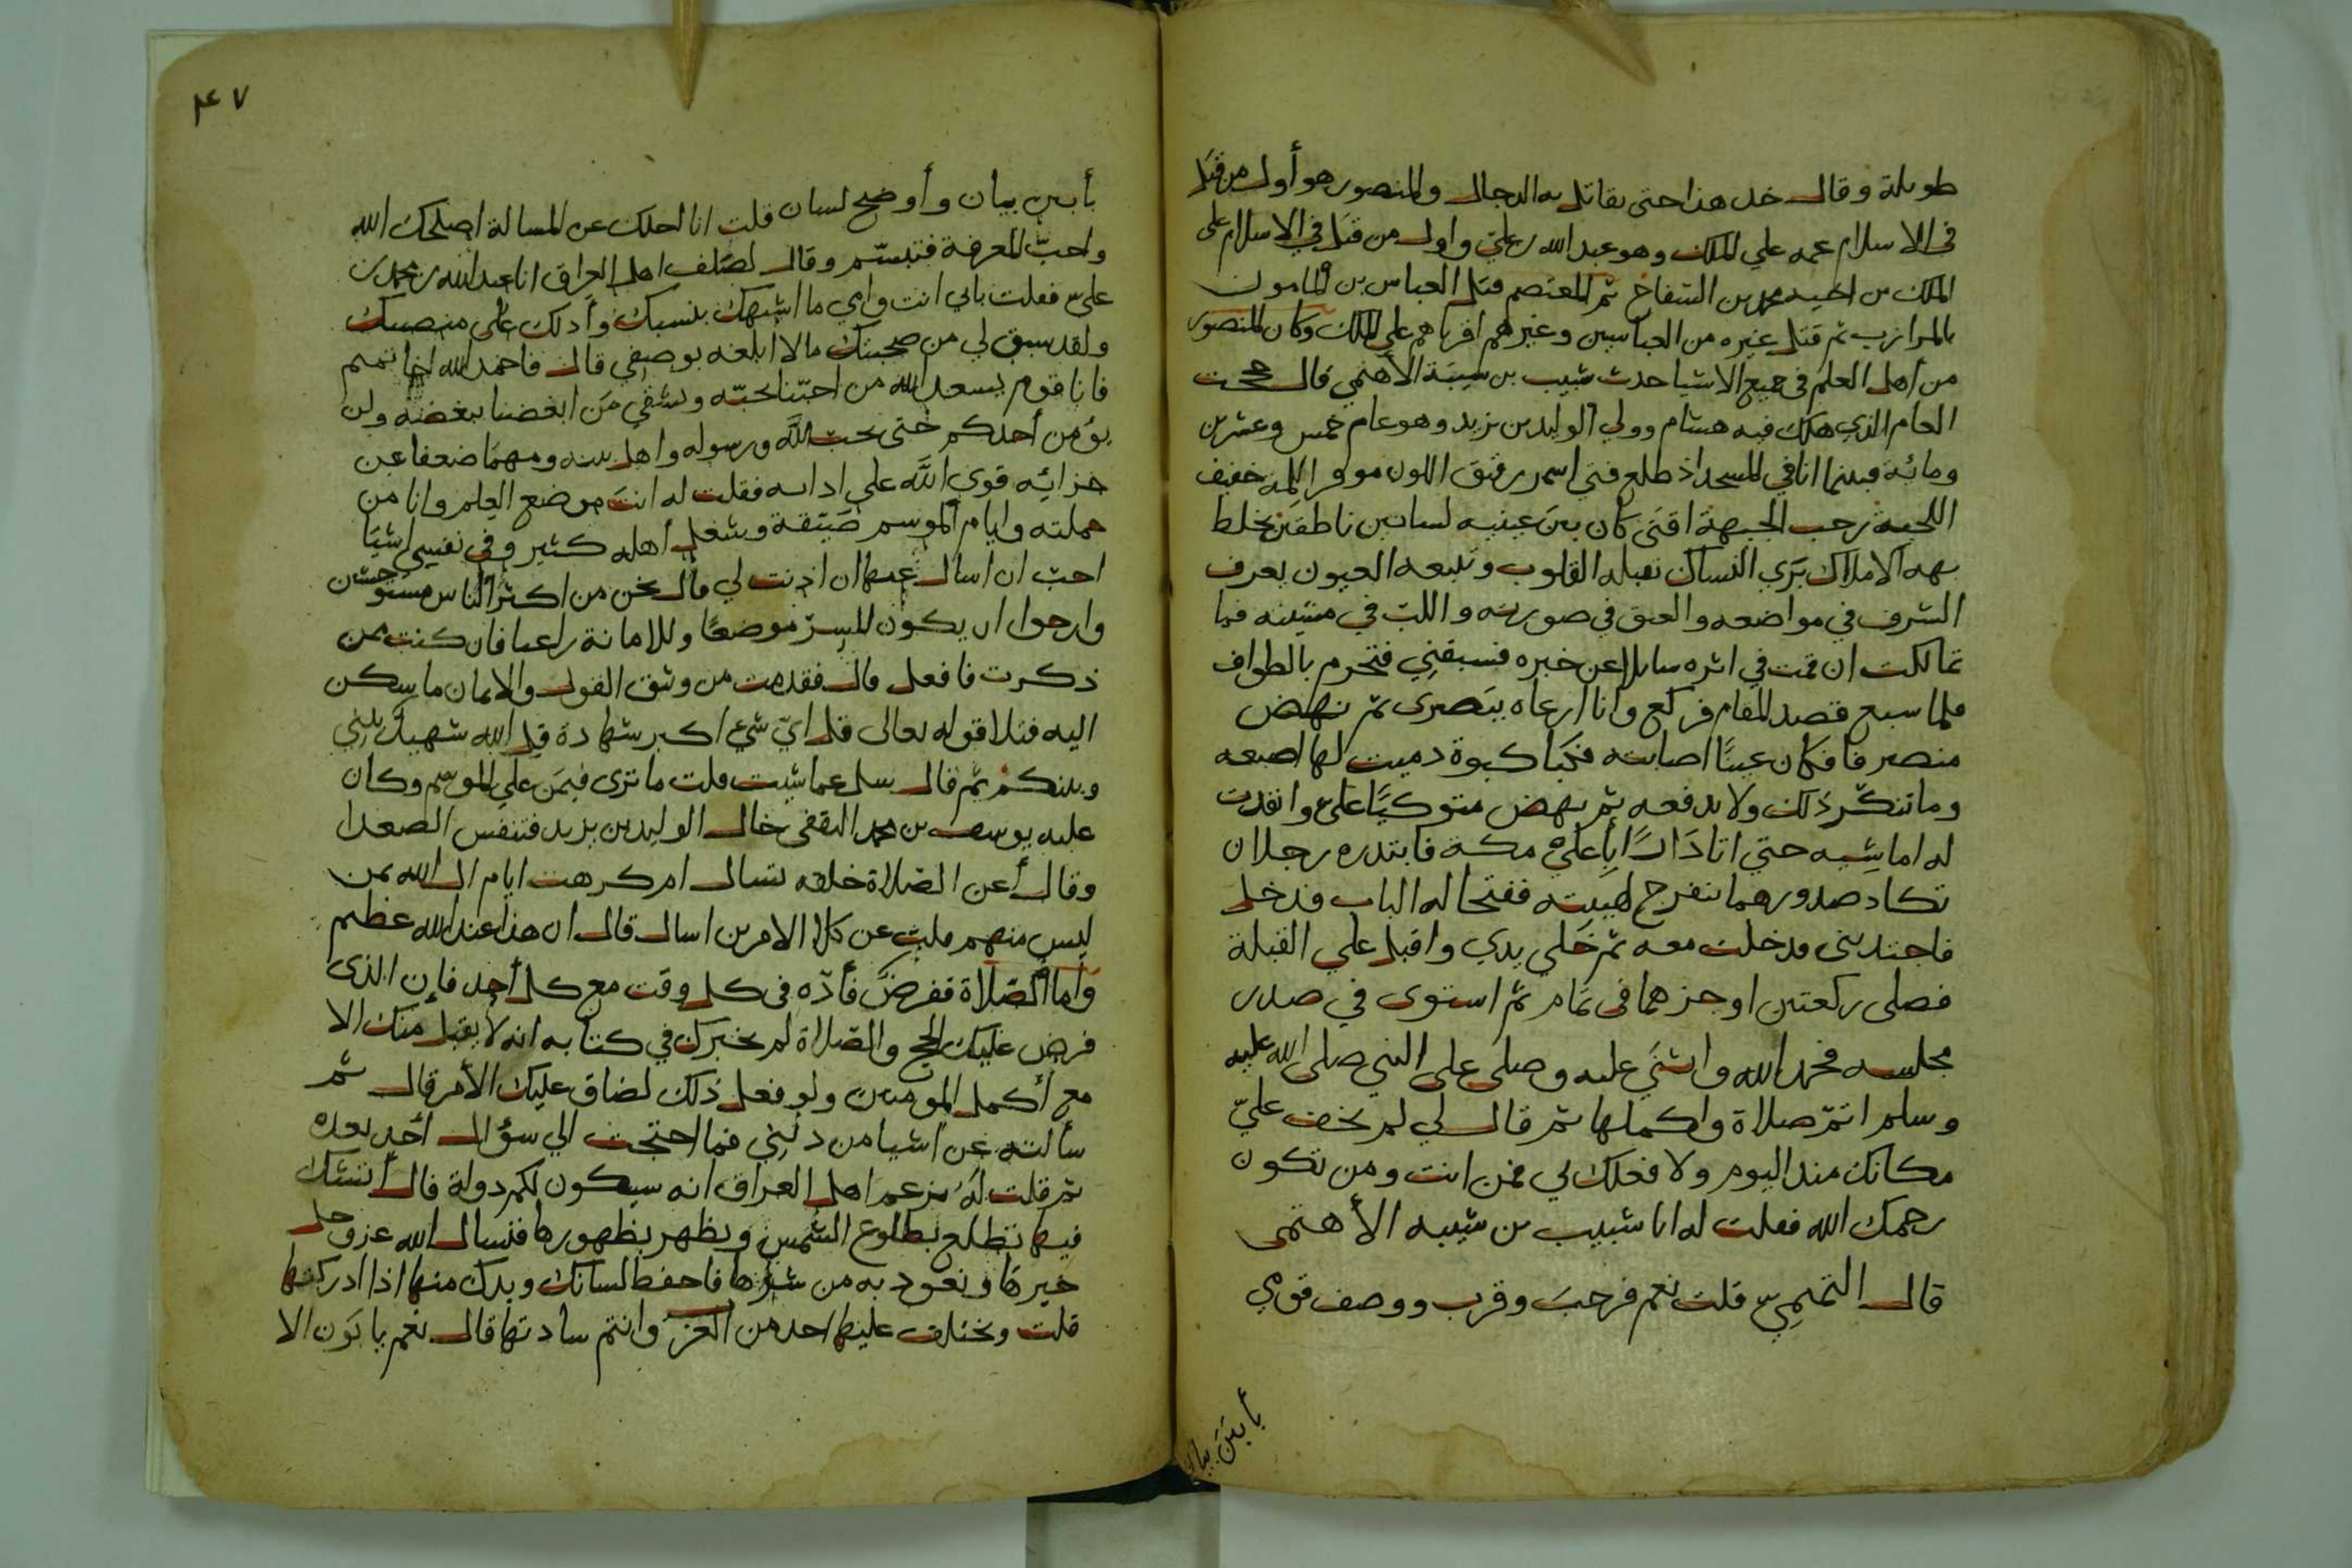 طويلة وقال خذ هذا حتى يقاتل به الدجال والمنصور هو أول من قتل
في الاسلام عمه علي الملك وهو عبد الله بن علي واول من قتل في الاسلام على
الملك من اخيه محمد بن السفاح ثم المعتصم قتل العباس بن المامون
بالمرازب ثم قتل غيره من العباسيين وغيرهم اقرباهم علي الملك وكان المنصور
من أهل العلم في جميع الاشيا حدث شبيب بن شيبة الأهتمي قال حججت
العام الذي هلك فيه هشام وولي الوليد بن يزيد وهو عام خمس وعشرين
ومائة فبينما انا في المسجد اذ طلع فتى اسمر رقيق اللون موفر اللمة خفيف
اللحية رحب الجبهة اقنى كان بين عينيه لسانين ناطقين يخلط
بهه الاملاك بزي النساك تقبله القلوب وتتبعه العيون يعرف
الشرف في مواضعه والعتق في صورته واللب في مشيته فما
تمالكت ان قمت في اثره سايلا عن خبره فسبقني فتحرم بالطواف
فلما سبع قصد المقام فركع وانا ارعاه ببصرى ثم نهض
منصرفا فكان عينًا اصابته فكبا كبوة دميت لها اصبعه
وما تنكر ذلك ولا يدفعه ثم نهض متوكيًا علي وانقدت
له اماشيه حتي اتا دَارًا بأعلى مكة فابتدره رجلان
تكاد صدورهما تنفرج لهيبته ففتحا له الباب فدخل
فاجتذبني فدخلت معه ثم خلى يدي واقبل علي القبلة
فصلى ركعتين اوجز هما في تمام ثم استوى في صدر
مجلسه فحمد الله واثنى عليه وصلى على النبي صلى الله عليه
وسلم اتم صلاة واكملها ثم قال لي لم يخف عليّ
مكانك منذ اليوم ولا فعلك لي فمن انت ومن تكون
رحمك الله فقلت له انا شبيب بن شيبه الأهتمى
قال التميمي قلت نعم فرحب وقرب ووصف قومي
بأبين بيان
٤٧
بأبين بيان وأوضح لسان قلت انا احلك عن المسالة اصلحك الله
واحبّ المعرفة فتبسّم وقال لصلف اهل العراق انا عبد الله بن محمد بن
علي فقلت بابي انت وامي ما اشبهك بنسبك وأدلك على منصبك
ولقد سبق لي من محبتك ما لا ابلغه بوصفى قال فاحمد الله اخا تميم
فانا قوم يسعد الله من احبّنا بحبّه ويشقي من ابغضنا ببغضه ولن
يؤمن أحدكم حتى يحب الله ورسوله واهل بيته ومهما ضعفنا عن
جزائه قوى الله على ادائه فقلت له انت موضع العلم وانا من
حملته وايام الموسم ضيّقة وشغل أهله كثير وفى نفسي اشيَا
احب ان اسال عنها ان اذنت لي قال نحن من اكثر الناس مستوحشون
وارجوا ان يكون للسرّ موضعًا وللامانة راعيا فان كنت ممن
ذكرت فافعل قال فقدمت من وثق القول والايمان ما سكن
اليه فتلا قوله تعالى قل ايّ شيء اكبر شهادة قل الله شهيد بيني
وبينكم ثم قال سل عما شيت قلت ما ترى فيمن علي الموسم وكان
عليه يوسف بن محمد الثقفي خال الوليد بن يزيد فتنفس الصعدا
وقال أعن الصلاة خلفه تسال ام كرهت ايام ال الله ممن
ليس منهم قلت عن كلا الامرين اسال قال ان هذا عند الله عظيم
واما الصّلاة ففرض فأدّه في كل وقت مع كل أحد فإن الذى
فرض عليك الحج والصّلاة لم يخبرك في كتابه انه لا يقبل منك الا
مع أكمل المومنين ولو فعل ذلك لضاق عليك الأمر قال ثم
سألته عن اشيا من ديني فما احتجت الي سؤال أحد بعده
ثم قلت له يزعم اهل العراق انه سيكون لكم دولة قال أتشك
فيها تطلع بطلوع الشمس وتظهر بظهورها فنسال الله عز وجل
خيرها ونعوذ به من شرها فاحفظ لسانك ويدك منها اذا ادركتها
قلت ويختلف عليها احد من العرب وانتم سادتها قال نعم يابون الا